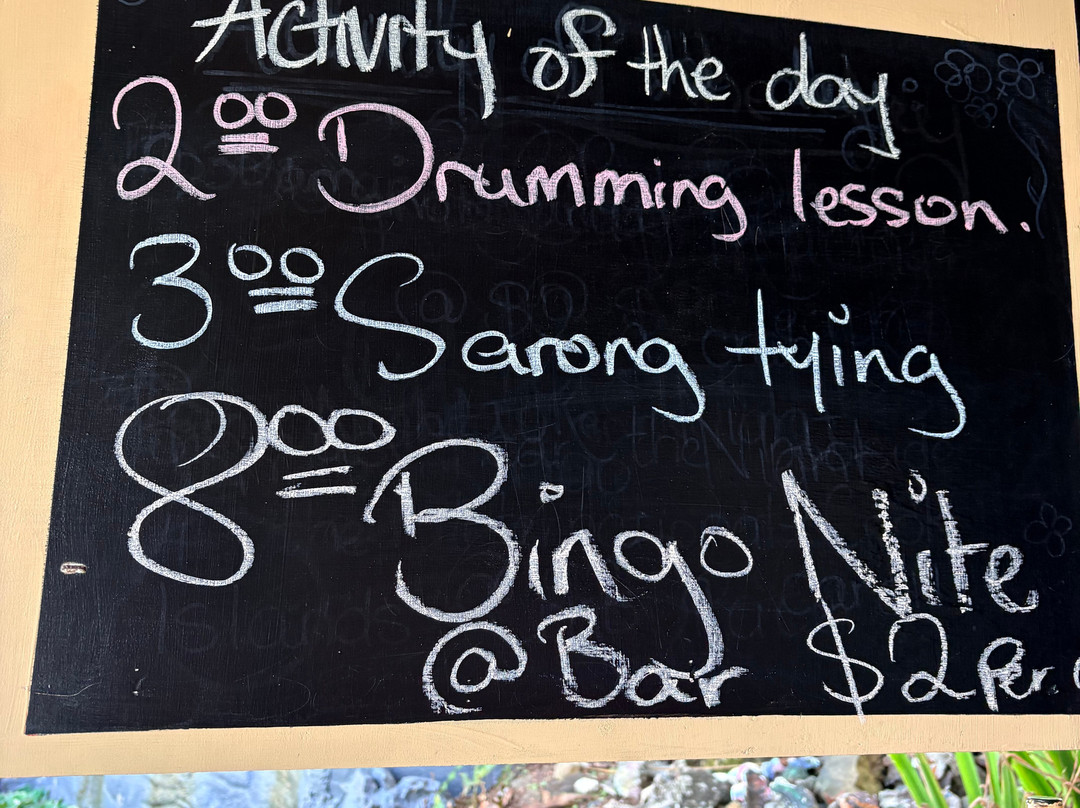 Activity of the day
2 00 Drumming lesson.
3 00 Sarong tying
8 00 Bingo Nite
@ Bar $2 Per